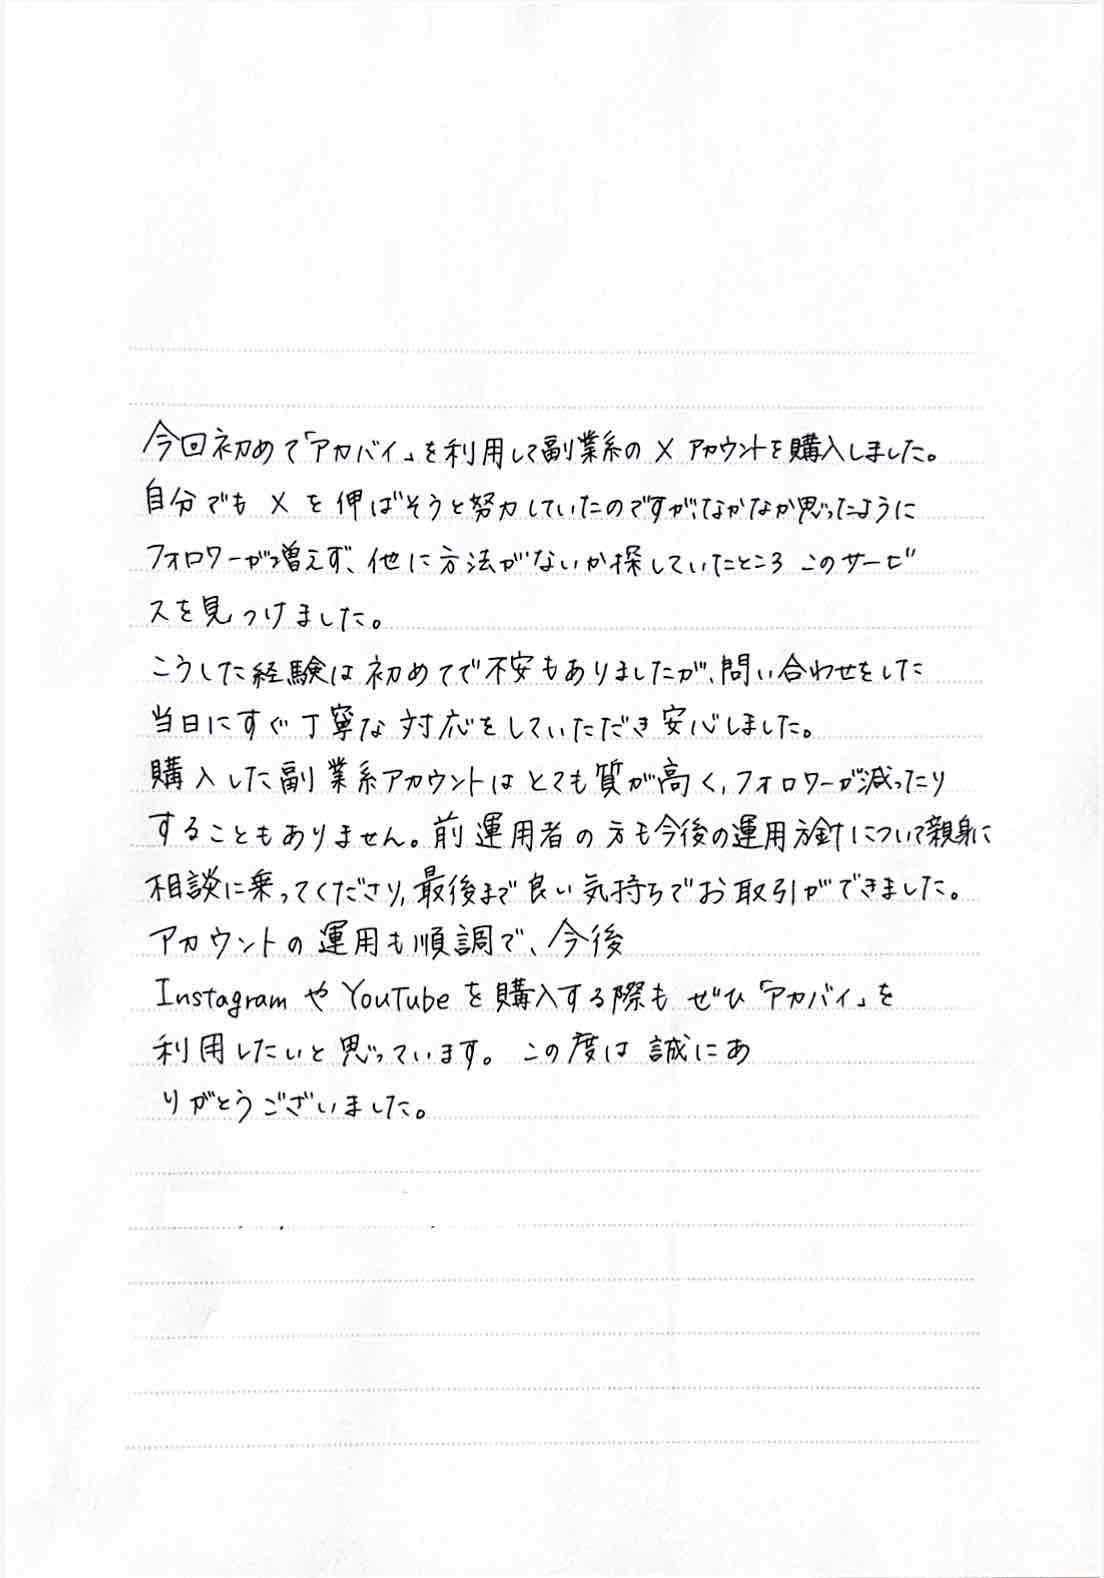 今回初めて「アカバイ」を利用して副業系の X アカウントを購入しました。
自分でも X を伸ばそうと努力していたのですが、なかなか思ったように
フォロワーが増えず、他に方法がないか探していたところ このサービ
スを見つけました。
こうした経験は初めてで不安もありましたが、問い合わせをした
当日にすぐ丁寧な対応をしていただき安心しました。
購入した副業系アカウントはとても質が高く、フォロワーが減ったり
することもありません。前運用者の方も今後の運用方針について親身に
相談に乗ってくださり、最後まで良い気持ちでお取引ができました。
アカウントの運用も順調で、今後
InstagramやYouTubeを購入する際も ぜひ「アカバイ」を
利用したいと思っています。この度は誠にあ
りがとうございました。